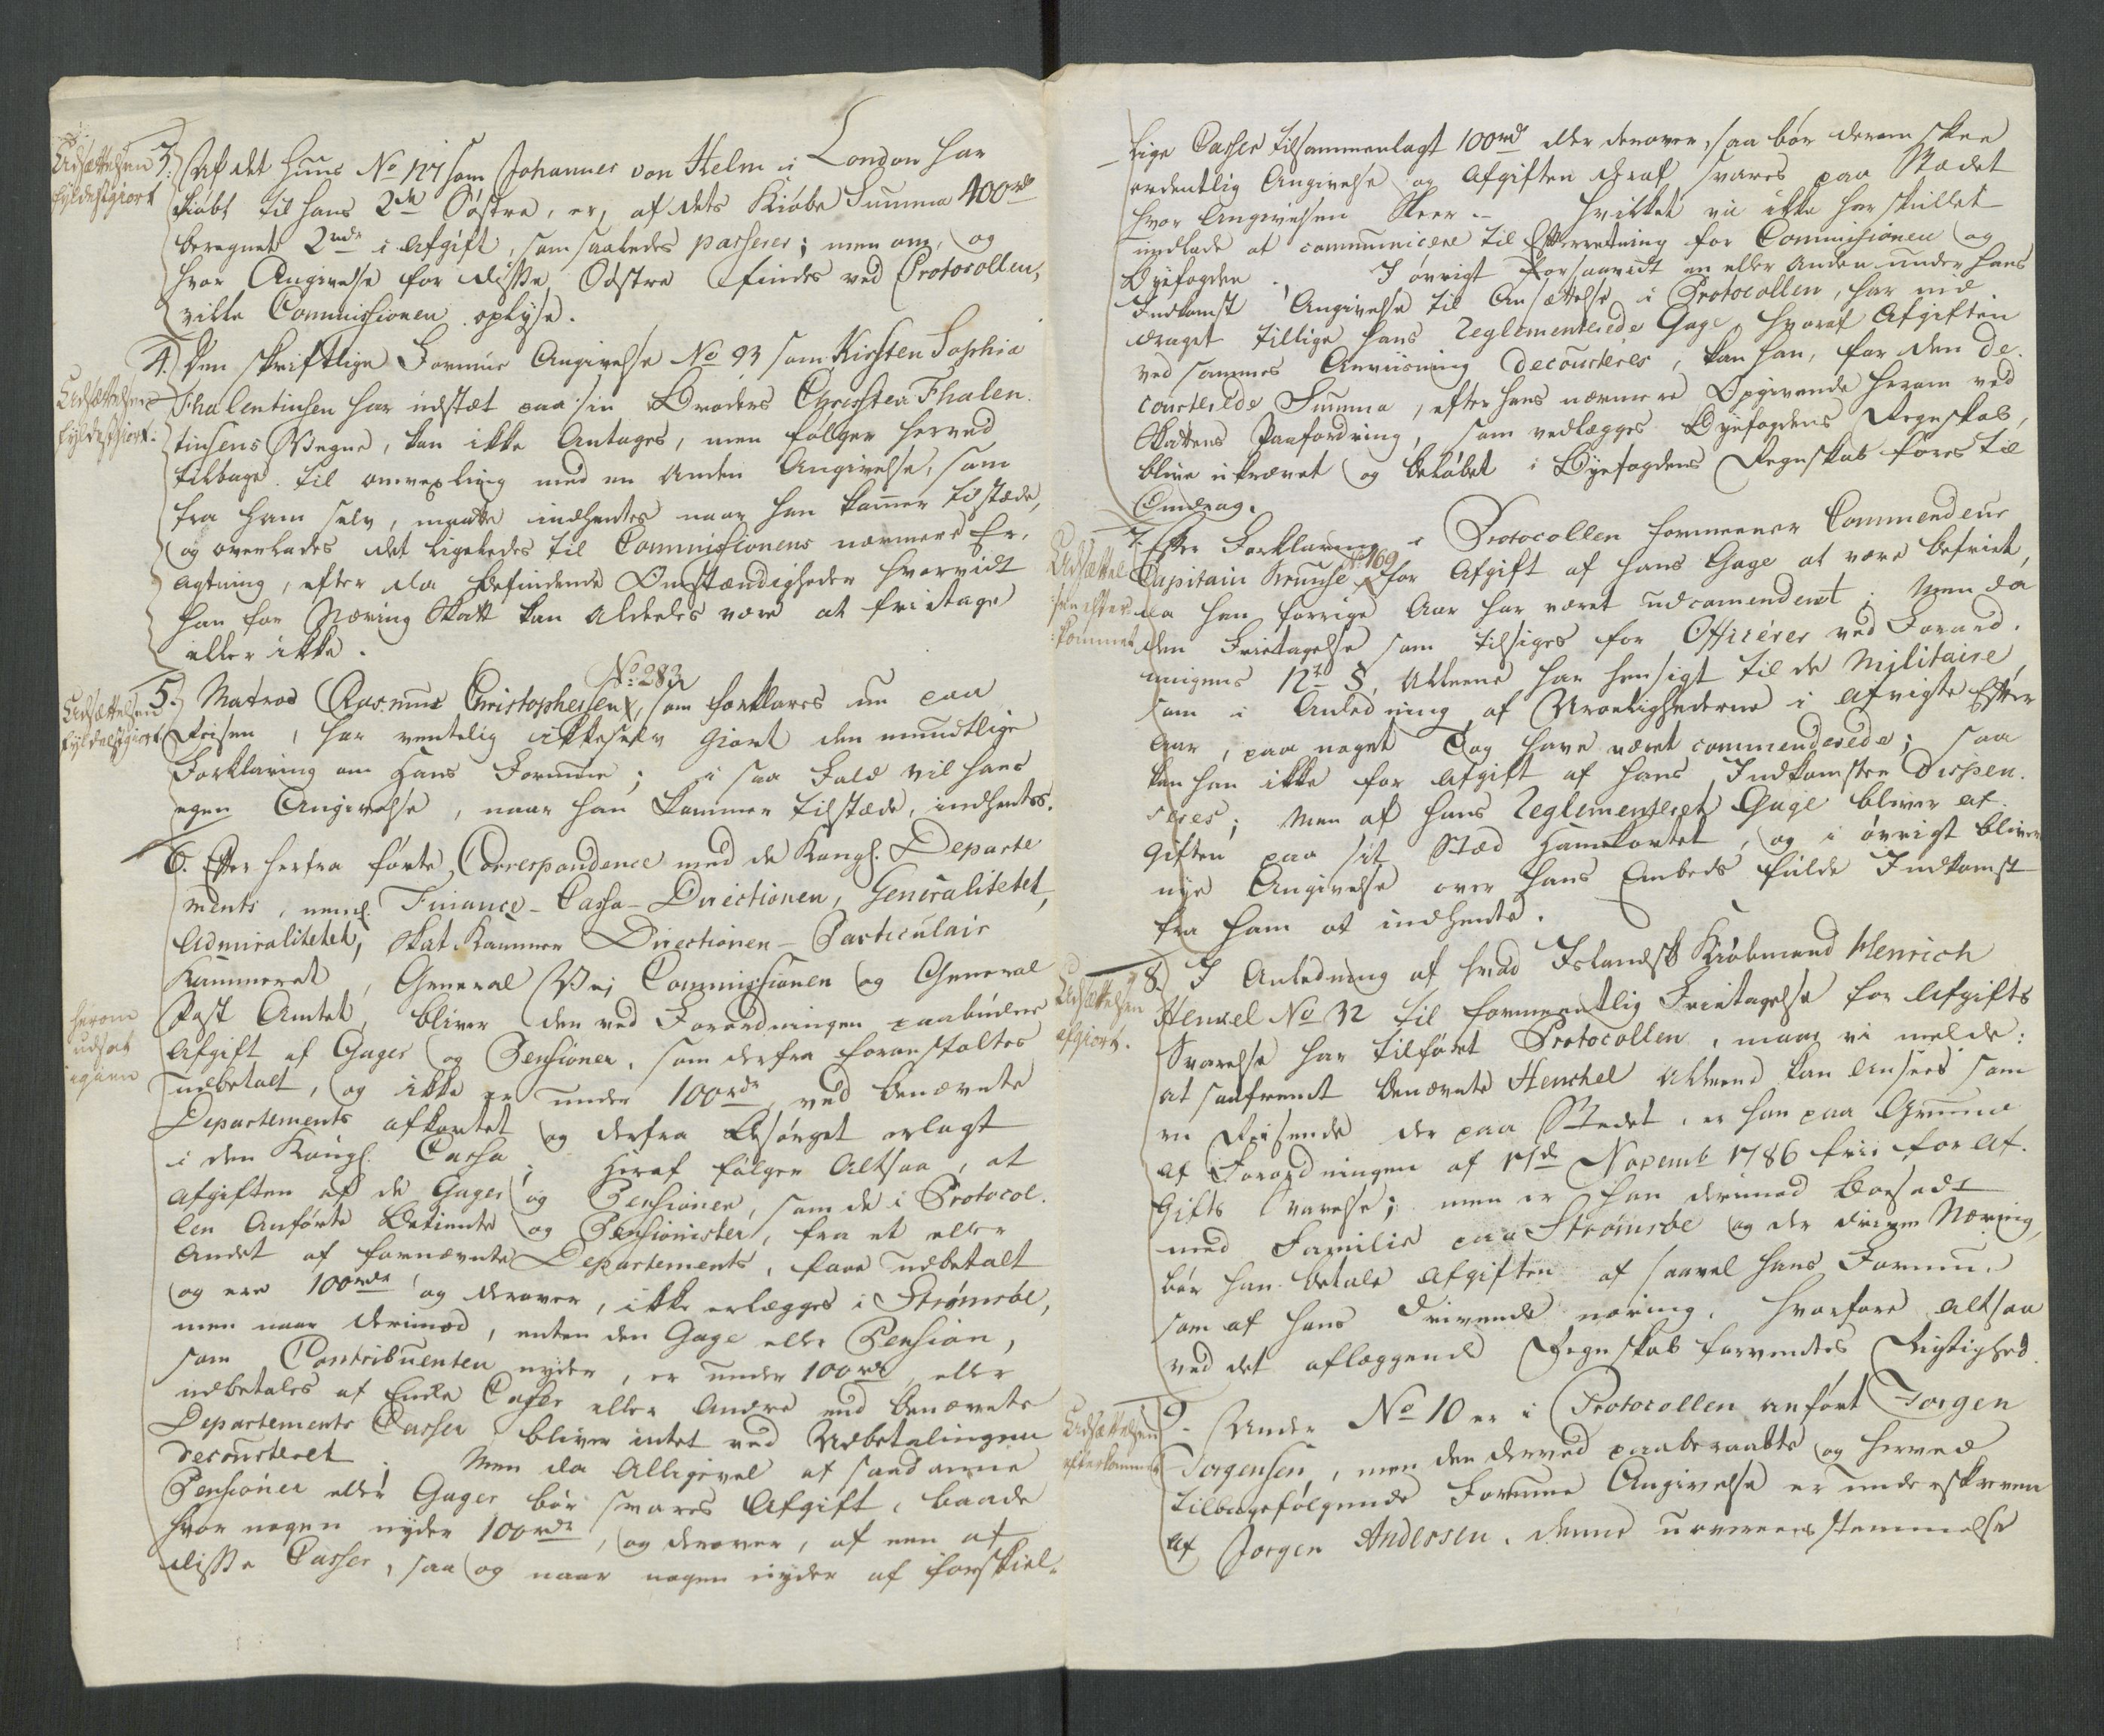 Udsættelsen
fyldestgiort
3. Af det Huus No 127 som Johannes von Helm i London har
kiøbt til hans 2de Søstre, er, af dets Kiøbe Summa 400rd
beregnet 2rdr i Afgift, som saaledes passerer; men om, og
hvor Angivelse for disse Søstre findes ved Protocollen,
ville Commissionen oplyse.
Udsættelsen
fyldestgiort:
4. Den skriftlige Formue Angivelse No 93 som Kirsten Sophia
Thalentinsen har udstæt paa sin Broders Christen Thalen-
tinsens Vegne, kan ikke Antages, men følger herved
tilbage til omvexling med en Anden Angivelse, som
fra ham selv, maatte indhentes naar han kommer tilstæde,
og overlades det ligeledes til Commissionens nærmere Er-
agtning, efter da befindende Omstændigheder hvorvidt
han for Næring Skatt kan Aldeeles være at fritage
eller ikke.
No 283
Udsættelsen
fyldestgiort
5. Matros Rasmus Christophersen, som forklares nu paa
Reisen, har ventelig ikke selv giort den mundtlige
Forklaring om Hans Formue; i saa Fald vil hans
egen Angivelse, naar han kommer tilstæde, indhentes.
6. Efter herfra førte Correspondence med de Kongl. Departe
ments, neml. Finance-Cassa-Directionen, Generalitetet,
Admiralitetet, Skat Kammer Directionen - Particulair
Kammeret, General Vej Commissionen og General
Post Amtet, bliver den ved Forordningen paabudne
herom
udsat
igien
Afgift af Gager og Pensioner, som derfra foranstaltes
udbetalt, og ikke er under 100rdr ved benævnte
Departements afkortet og derfra besørget erlagt
i den Kongl. Cassa; Heraf følger Altsaa, at
Afgiften af de Gager og Pensioner, som de i Protocol-
len Anførte Betiente og Pensionister, fra et eller
Andet af fornævnte Departements, faae udbetalt
og ere 100rdr og derover, ikke erlægges i Strømsøe,
men naar derimod, enten den Gage eller Pension,
som Contribuenten nyder, er under 100rd, eller
udbetales af Casser eller Andre end benævnte
Departements Casser, bliver intet ved Udbetalingen
decourteret. Men da Alligevel af saadanne
Pensioner eller Gager bør svares Afgift, baade
hvor nogen nyder 100rdr, og derover, af een af
disse Casser, saa og naar nogen nyder af forskiel-
lige Casser tilsammenlagt 100rd eller derover, saa bør derom skee
ordentlig Angivelse og Afgiften deraf svares paa Stædet
hvor Angivelsen skeer. - Hvilket vi ikke har skullet
undlade at communicere til Efterretning for Commissionen og
Byefogden. I øvrigt forsaavidt en eller Anden under hans
Indkomst Angivelse til Ansættelse i Protocollen, har ind
draget tillige hans Reglementerede Gage, hvoraf Afgiften
ved sammes Anviisning decourteres, kan han, for den de-
courterede Summa, efter hans nærmere Opgivende herom ved
Skattens Paafordring, som vedlægges Byefogdens Regnskab,
blive ukrævet og beløbet i Byefogdens Regnskab føres til
Omdrag.
Udsættel
sen efter
kommet
7. Efter Forklaring i Protocollen formeener Commendeur
Capitain Struuse No 169 for Afgift af hans Gage at være befriet,
da han forrige Aar har været udcomenderet; Men da
den Frietagelse som tilsiges for Officerer ved Forord-
ningens 12te § Alleene har Hensigt til de Militaire
som i Anledning af Uroelighederne i afvigte Efter
Aar, paa noget Tog have været commenderede; saa
kan han ikke for Afgift af hans Indkomster dispen-
seres; Men af hans Reglementeret Gage bliver Af-
giften paa sit Stæd ham kortet, og i øvrigt bliver
nye Angivelse over hans Embeds fulde Indkomst
fra ham at indhente.
Udsættelsen
afgiort.
8. I Anledning af hvad Islandsk Kiøbmand Henrich
Henkel No 32 til formeentlig Frietagelse for Afgifts
Svarelse har tilført Protocollen, maae vi melde:
at saafremt benævnte Henckel Alleene kan Ansees som
en Reisende der paa Stedet, er han paa Grund
af Forordningen af 17de Novemb 1786 frie for Af-
gifts Svarelse; men er han derimod boesadt
med Familie paa Strømsøe og der driver Næring,
bør han betale Afgiften af saavel hans Formue
som af hans drivende næring, hvorfore altsaa
ved det aflæggende Regnskab forventes Rigtighed.
Udsættelsen
efterkommet
9. Under No 10 er i Protocollen anført Jørgen
Jørgensen, men den derved paaberaabte og herved
tilbagefølgende Formue Angivelse er underskreven
af Jørgen Anderssen. denne uovereensstemmelse